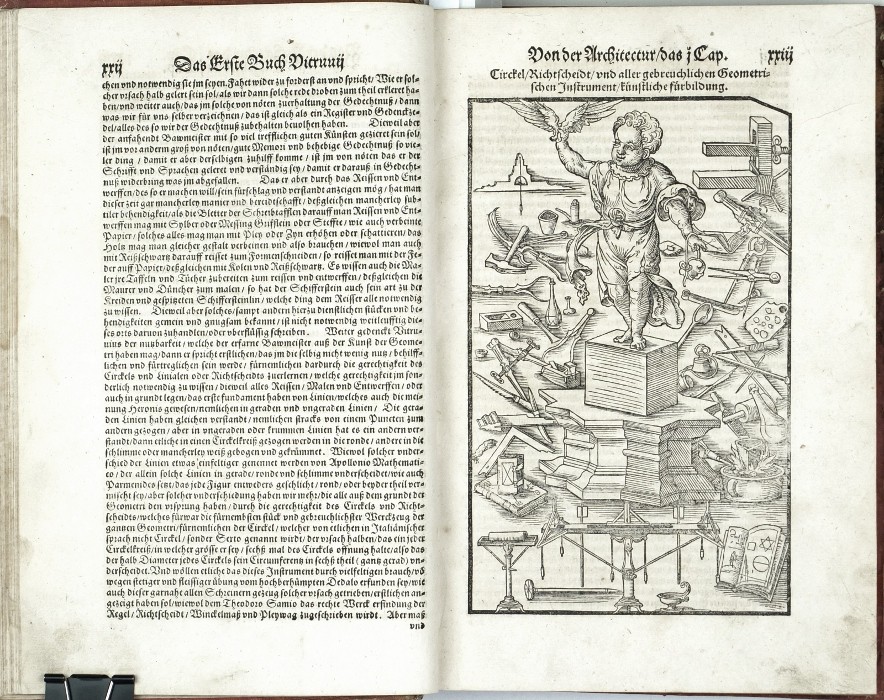 xxij
Das Erste Buch Vitruuij
chen vnd notwendig sie jm seyen. Fahet wider zu forderst an vnd spricht / Wie er sol-
cher vrsach halb gelert sein sol / als wir dann solche rede droben zum theil erkleret ha-
ben / vnd weiter auch / das jm solche von nöten zuerhaltung der Gedechtnuß / dann
was wir für vns selber verzeichnen / das ist gleich als ein Register vnd Gedenckze-
del / alles des so wir der Gedechtnuß zubehalten beuolhen haben. Dieweil aber
der anfahendt Bawmeister mit so viel trefflichen guten Künsten gezieret sein sol /
ist jm vor andern groß von nöten / gute Memori vnd behebige Gedechtnuß so vie-
ler ding / damit er aber derselbigen zuhilff komme / ist jm von nöten das er der
Schrifft vnd Sprachen gelert vnd verstendig sey / damit er darauß in Gedecht-
nuß widerbring was jm abgefallen. Das er aber durch das Reissen vnd Ent-
werffen / des so er machen will / sein fürschlag vnd verstandt anzeigen mög / hat man
dieser zeit gar mancherley manier vnd bereidtschafft / deßgleichen mancherley sub-
tiler behendigkeit / als die Bletter der Schreibtafflen darauff man Reissen vnd Ent-
werffen mag mit Sylber oder Messing Grifflein oder Steffte / wie auch verbeinte
Papier / solches alles mag man mit Pley oder Zyn erhöhen oder schattieren / das
Holtz mag man gleicher gestalt verbeinen vnd also brauchen / wiewol man auch
mit Reißschwartz darauff reisset zum Formenschneiden / so reisset man mit der Fe-
der auff Papier / deßgleichen mit Kolen vnd Reißschwartz. Es wissen auch die Ma-
ler jre Taffeln vnd Tücher zubereiten zum reissen vnd entwerffen / deßgleichen die
Maurer vnd Düncher zum malen / so hat der Schifferstein auch sein art zu der
Kreiden vnd gespitzten Schiffersteinlin / welche ding dem Reisser alle notwendig
zu wissen. Dieweil aber solches / sampt andern hierzu dienstlichen stücken vnd be-
hendigkeiten gemein vnd gnugsam bekannt / ist nicht notwendig weitleufftig die-
ses orts daruon zuhandlen / oder vberflüssig schreiben. Weiter gedenckt Vitru-
uius der nutzbarkeit / welche der erfarne Bawmeister auß der Kunst der Geome-
tri haben mag / dann er spricht erstlichen / das jm die selbig nicht wenig nutz / behilff-
lichen vnd fürtreglichen sein werde / fürnemlichen dardurch die gerechtigkeit des
Circkels vnd Linialen oder Richtscheidts zuerlernen / welche gerechtigkeit jm son-
derlich notwendig zu wissen / dieweil alles Reissen / Malen vnd Entwerffen / oder
auch in grundt legen / das erste fundament haben von Linien / welches auch die mei-
nung Heronis gewesen / nemlichen in geraden vnd vngeraden Linien / Die gera-
den Linien haben gleichen verstandt / nemlichen stracks von einem Puncten zum
andern gezogen / aber in vngeraden oder krummen Linien hat es ein andern ver-
standt / dann etliche in einen Circkelkreiß gezogen werden in die ronde / andere in die
schlimme oder mancherley weiß gebogen vnd gekrümmet. Wiewol solcher vnder-
schied der Linien etwas einfeltiger genennet werden von Apollonio Mathemati-
co / der allein solche Linien in gerade / ronde vnd schlimme vnderscheidet / wie auch
Parmenides setzt / das jede Figur entweders geschlicht / rond / oder beyder theil ver-
mischt sey / aber solcher vnderschiedung haben wir mehr / die alle auß dem grundt der
Geometri den vrsprung haben / durch die gerechtigkeit des Circkels vnd Richt-
scheidts / welches fürwar die fürnembsten stück vnd gebreuchlichster Werckzeug der
gantzen Geometri / fürnemlichen der Circkel / welcher von etlichen in Italiänischer
sprach nicht Circkel / sonder Sexto genannt wirdt / der vrsach halben / das ein jeder
Circkelkreiß / in welcher grösse er sey / sechß mal des Circkels öffnung halte / also das
der halb Diameter jedes Circkels sein Circumferentz in sechß theil (gantz gerad) vn-
derscheidet. Vnd wöllen etliche das dieses Instrument durch vielfeltigen brauch / võ
wegen stetiger vnd fleissiger übung vom hochberhümpten Dedalo erfunden sey / wie
auch dieser garnahe allen Schreinern gezeug solcher vrsach getrieben / erstlichen an-
gezeigt haben sol / wiewol dem Theodoro Samio das rechte Werck erfindung der
Regel / Richtscheidt / Winckelmaß vnd Pleywag zugeschrieben wirdt. Aber maß
vnd
Von der Architectur / das j Cap.
xxiij
Circkel / Richtscheidt / vnd aller gebreuchlichen Geometri-
schen Instrument / künstliche fürbildung.